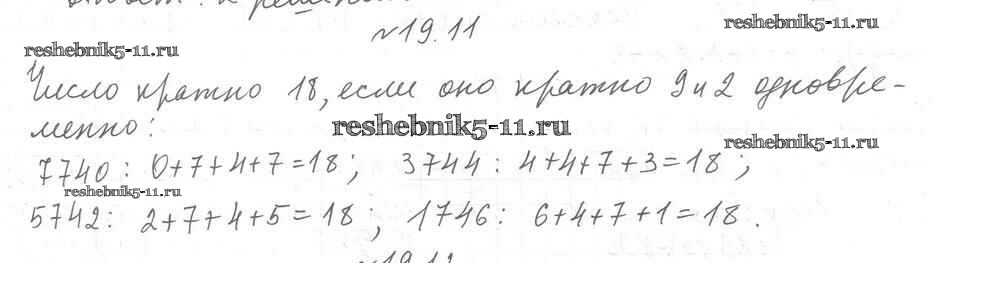 №19.11
reshebnik5-11.ru
reshebnik5-11.ru
Число кратно 18, если оно кратно 9 и 2 одновре-
менно:
reshebnik5-11.ru
reshebnik5-11.ru
7740: 0+7+4+7=18; 3744: 4+4+7+3=18;
reshebnik5-11.ru
5742: 2+7+4+5=18; 1746: 6+4+7+1=18.